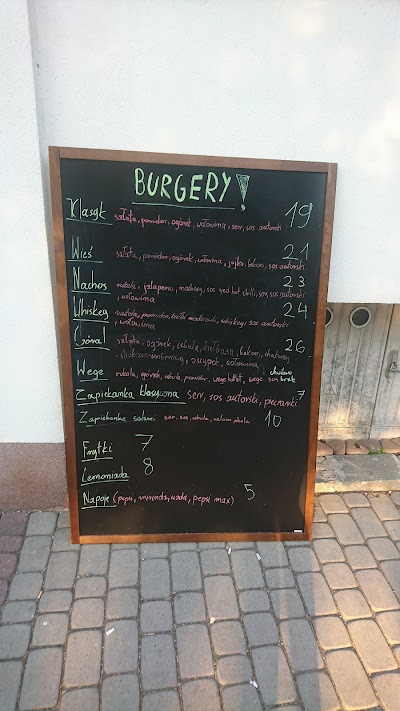 BURGERY!
Klasyk sałata, pomidor, ogórek, wołowina, ser, sos autorski 19
Wieś sałata, pomidor, ogórek, wołowina, jajko, bekon, sos autorski 21
Nachos rukola, jalapeno, nachosy, sos red hot chili, ser, sos autorski 23
, wołowina
Whiskey pomidor, sos autorski 24
, wołowina
Góral sałata, ogórek, cebula, kiełbasa, bekon, chutney 26
oscypek, wołowina
Wege rukola, ogórek, cebula, pomidor, wege kotlet, wege sos chwilowo
brak
Zapiekanka klasyczna ser, sos autorski, pieczarki 7
Zapiekanka salami ser, sos, cebula, salami 10
Frytki 7
Lemoniada 8
Napoje (pepsi, mirinda, woda, pepsi max) 5